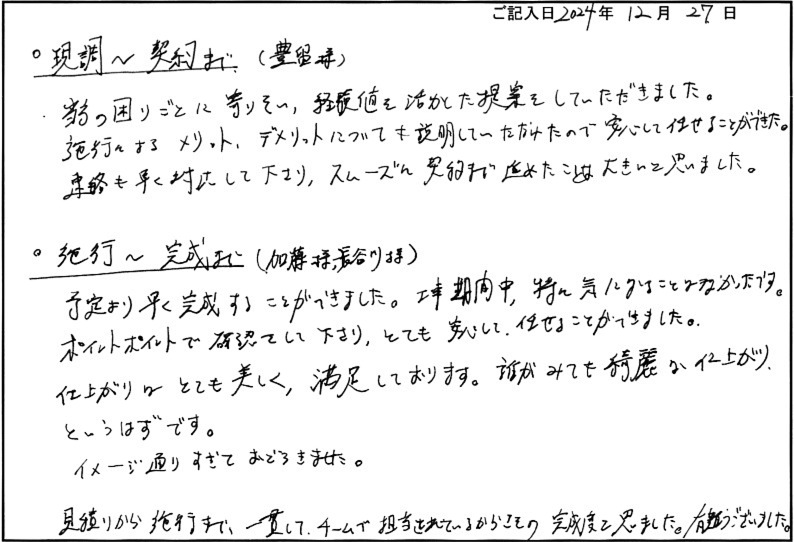 ご記入日 2024年 12月 27日
○ 現調〜契約まで (豊留様)
・弊の困りごとに寄りそい、経験値を活かした提案をしていただきました。
施行によるメリット、デメリットについても説明していただけたので安心して任せることができた。
連絡も早く対応して下さり、スムーズに契約まで進めたことは大きいと思いました。
○ 施行〜完成まで (加藤様、長谷川様)
予定より早く完成することができました。工事期間中、特に気になることはなかったです。
ポイントポイントで確認して下さり、とても安心して、任せることができました。
仕上がりはとても美しく、満足しております。誰がみても綺麗な仕上がり、
というはずです。
イメージ通りすぎておどろきました。
見積りから施行まで、一貫して、チームで担当されているからこその完成度と思いました。有難うございました。